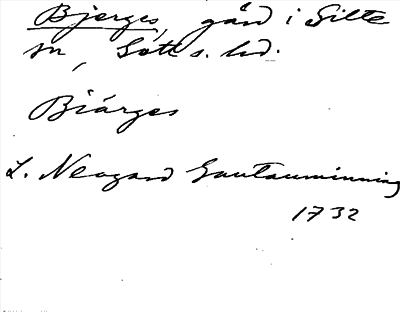 Bjerges, gård i Silte
sn, Gotl. s. hd.
Biärges
L. Neogard Gautauminning
1732